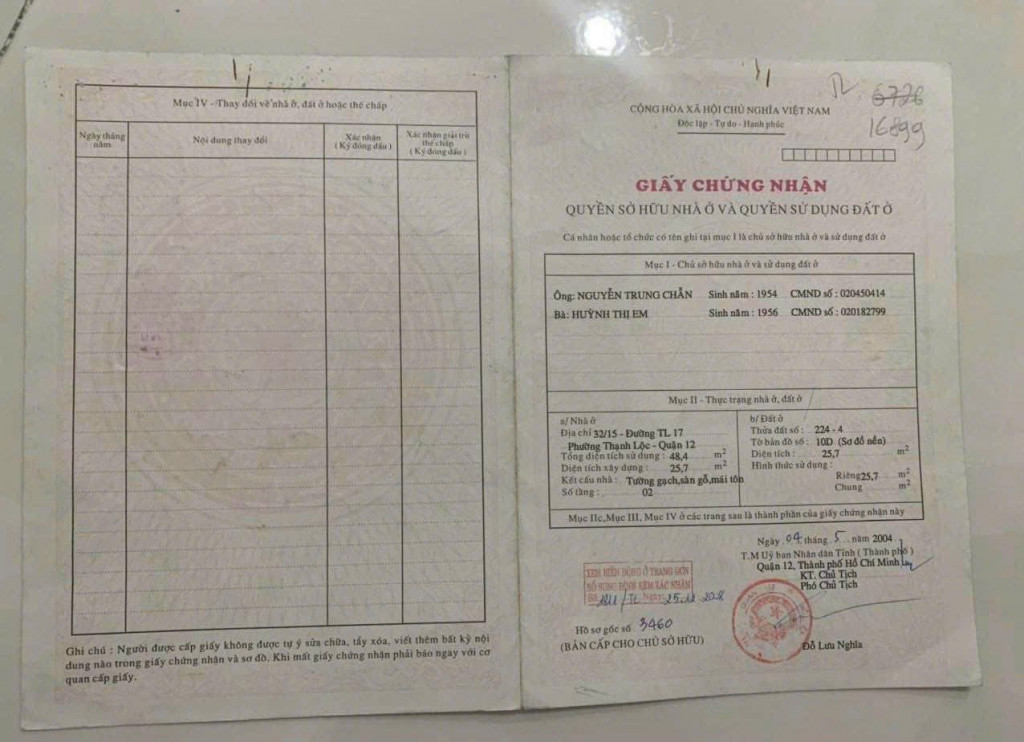 Mục IV - Thay đổi về nhà ở, đất ở hoặc thế chấp
Ngày tháng năm
Nội dung thay đổi
Xác nhận
( Ký đóng dấu )
Xác nhận giải trừ
thế chấp
( Ký đóng dấu )
Ghi chú : Người được cấp giấy không được tự ý sửa chữa, tẩy xóa, viết thêm bất kỳ nội
dung nào trong giấy chứng nhận và sơ đồ. Khi mất giấy chứng nhận phải báo ngay với cơ
quan cấp giấy.
TL
6726
16899
CỘNG HÒA XÃ HỘI CHỦ NGHĨA VIỆT NAM
Độc lập - Tự do - Hạnh phúc
GIẤY CHỨNG NHẬN
QUYỀN SỞ HỮU NHÀ Ở VÀ QUYỀN SỬ DỤNG ĐẤT Ở
Cá nhân hoặc tổ chức có tên ghi tại mục I là chủ sở hữu nhà ở và sử dụng đất ở
Mục I - Chủ sở hữu nhà ở và sử dụng đất ở
Ông: NGUYỄN TRUNG CHẮN Sinh năm : 1954 CMND số : 020450414
Bà: HUỲNH THỊ EM Sinh năm : 1956 CMND số : 020182799
Mục II - Thực trạng nhà ở, đất ở
a/ Nhà ở
Địa chỉ 32/15 - Đường TL 17
Phường Thạnh Lộc - Quận 12
Tổng diện tích sử dụng : 48,4 m2
Diện tích xây dựng : 25,7 m2
Kết cấu nhà : Tường gạch,sàn gỗ,mái tôn
Số tầng : 02
b/ Đất ở
Thửa đất số : 224 - 4
Tờ bản đồ số : 10D (Sơ đồ nền)
Diện tích : 25,7 m2
Hình thức sử dụng :
Riêng 25,7 m2
Chung m2
Mục IIc,Mục III, Mục IV ở các trang sau là thành phần của giấy chứng nhận này
Ngày 04 tháng 5 năm 2004
T.M Uỷ ban Nhân dân Tỉnh ( Thành phố )
Quận 12, Thành phố Hồ Chí Minh
KT. Chủ Tịch
Phó Chủ Tịch
XEM BIẾN ĐỘNG Ở TRANG ĐƠN
BỔ SUNG ĐÍNH KÈM XÁC NHẬN
Hồ sơ gốc số 3460
(BẢN CẤP CHO CHỦ SỞ HỮU)
Đỗ Lưu Nghĩa